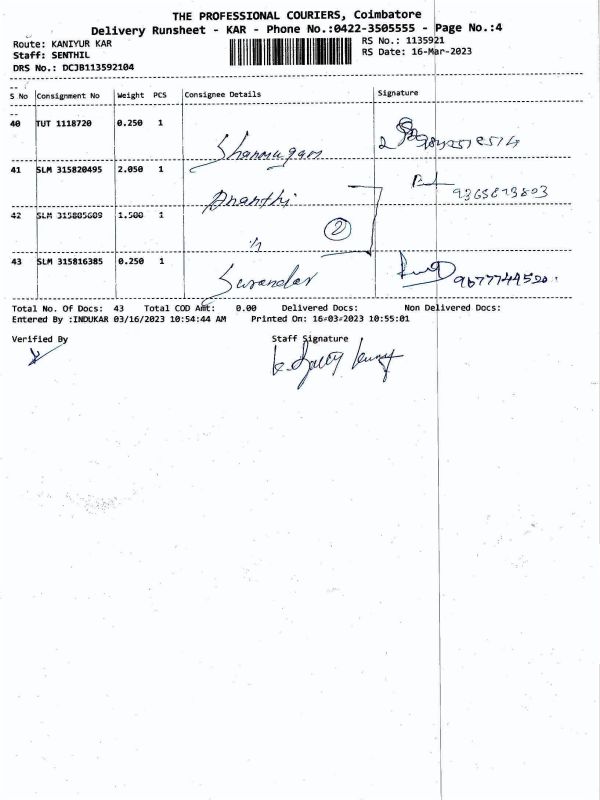 THE PROFESSIONAL COURIERS, Coimbatore
Delivery Runsheet - KAR - Phone No.:0422-3505555 - Page No.:4
Route: KANIYUR KAR
Staff: SENTHIL
DRS No.: DCJB113592104
RS No.: 1135921
RS Date: 16-Mar-2023
S No Consignment No Weight PCS Consignee Details Signature
40 TUT 1118720 0.250 1
Shanmugam
41 SLM 315820495 2.050 1
Ananthi
9365873803
42 SLM 315805609 1.500 1
2
43 SLM 315816385 0.250 1
Surandar
9677744520
Total No. Of Docs: 43 Total COD Amt: 0.00 Delivered Docs: Non Delivered Docs:
Entered By :INDUKAR 03/16/2023 10:54:44 AM Printed On: 16-03-2023 10:55:01
Verified By Staff Signature